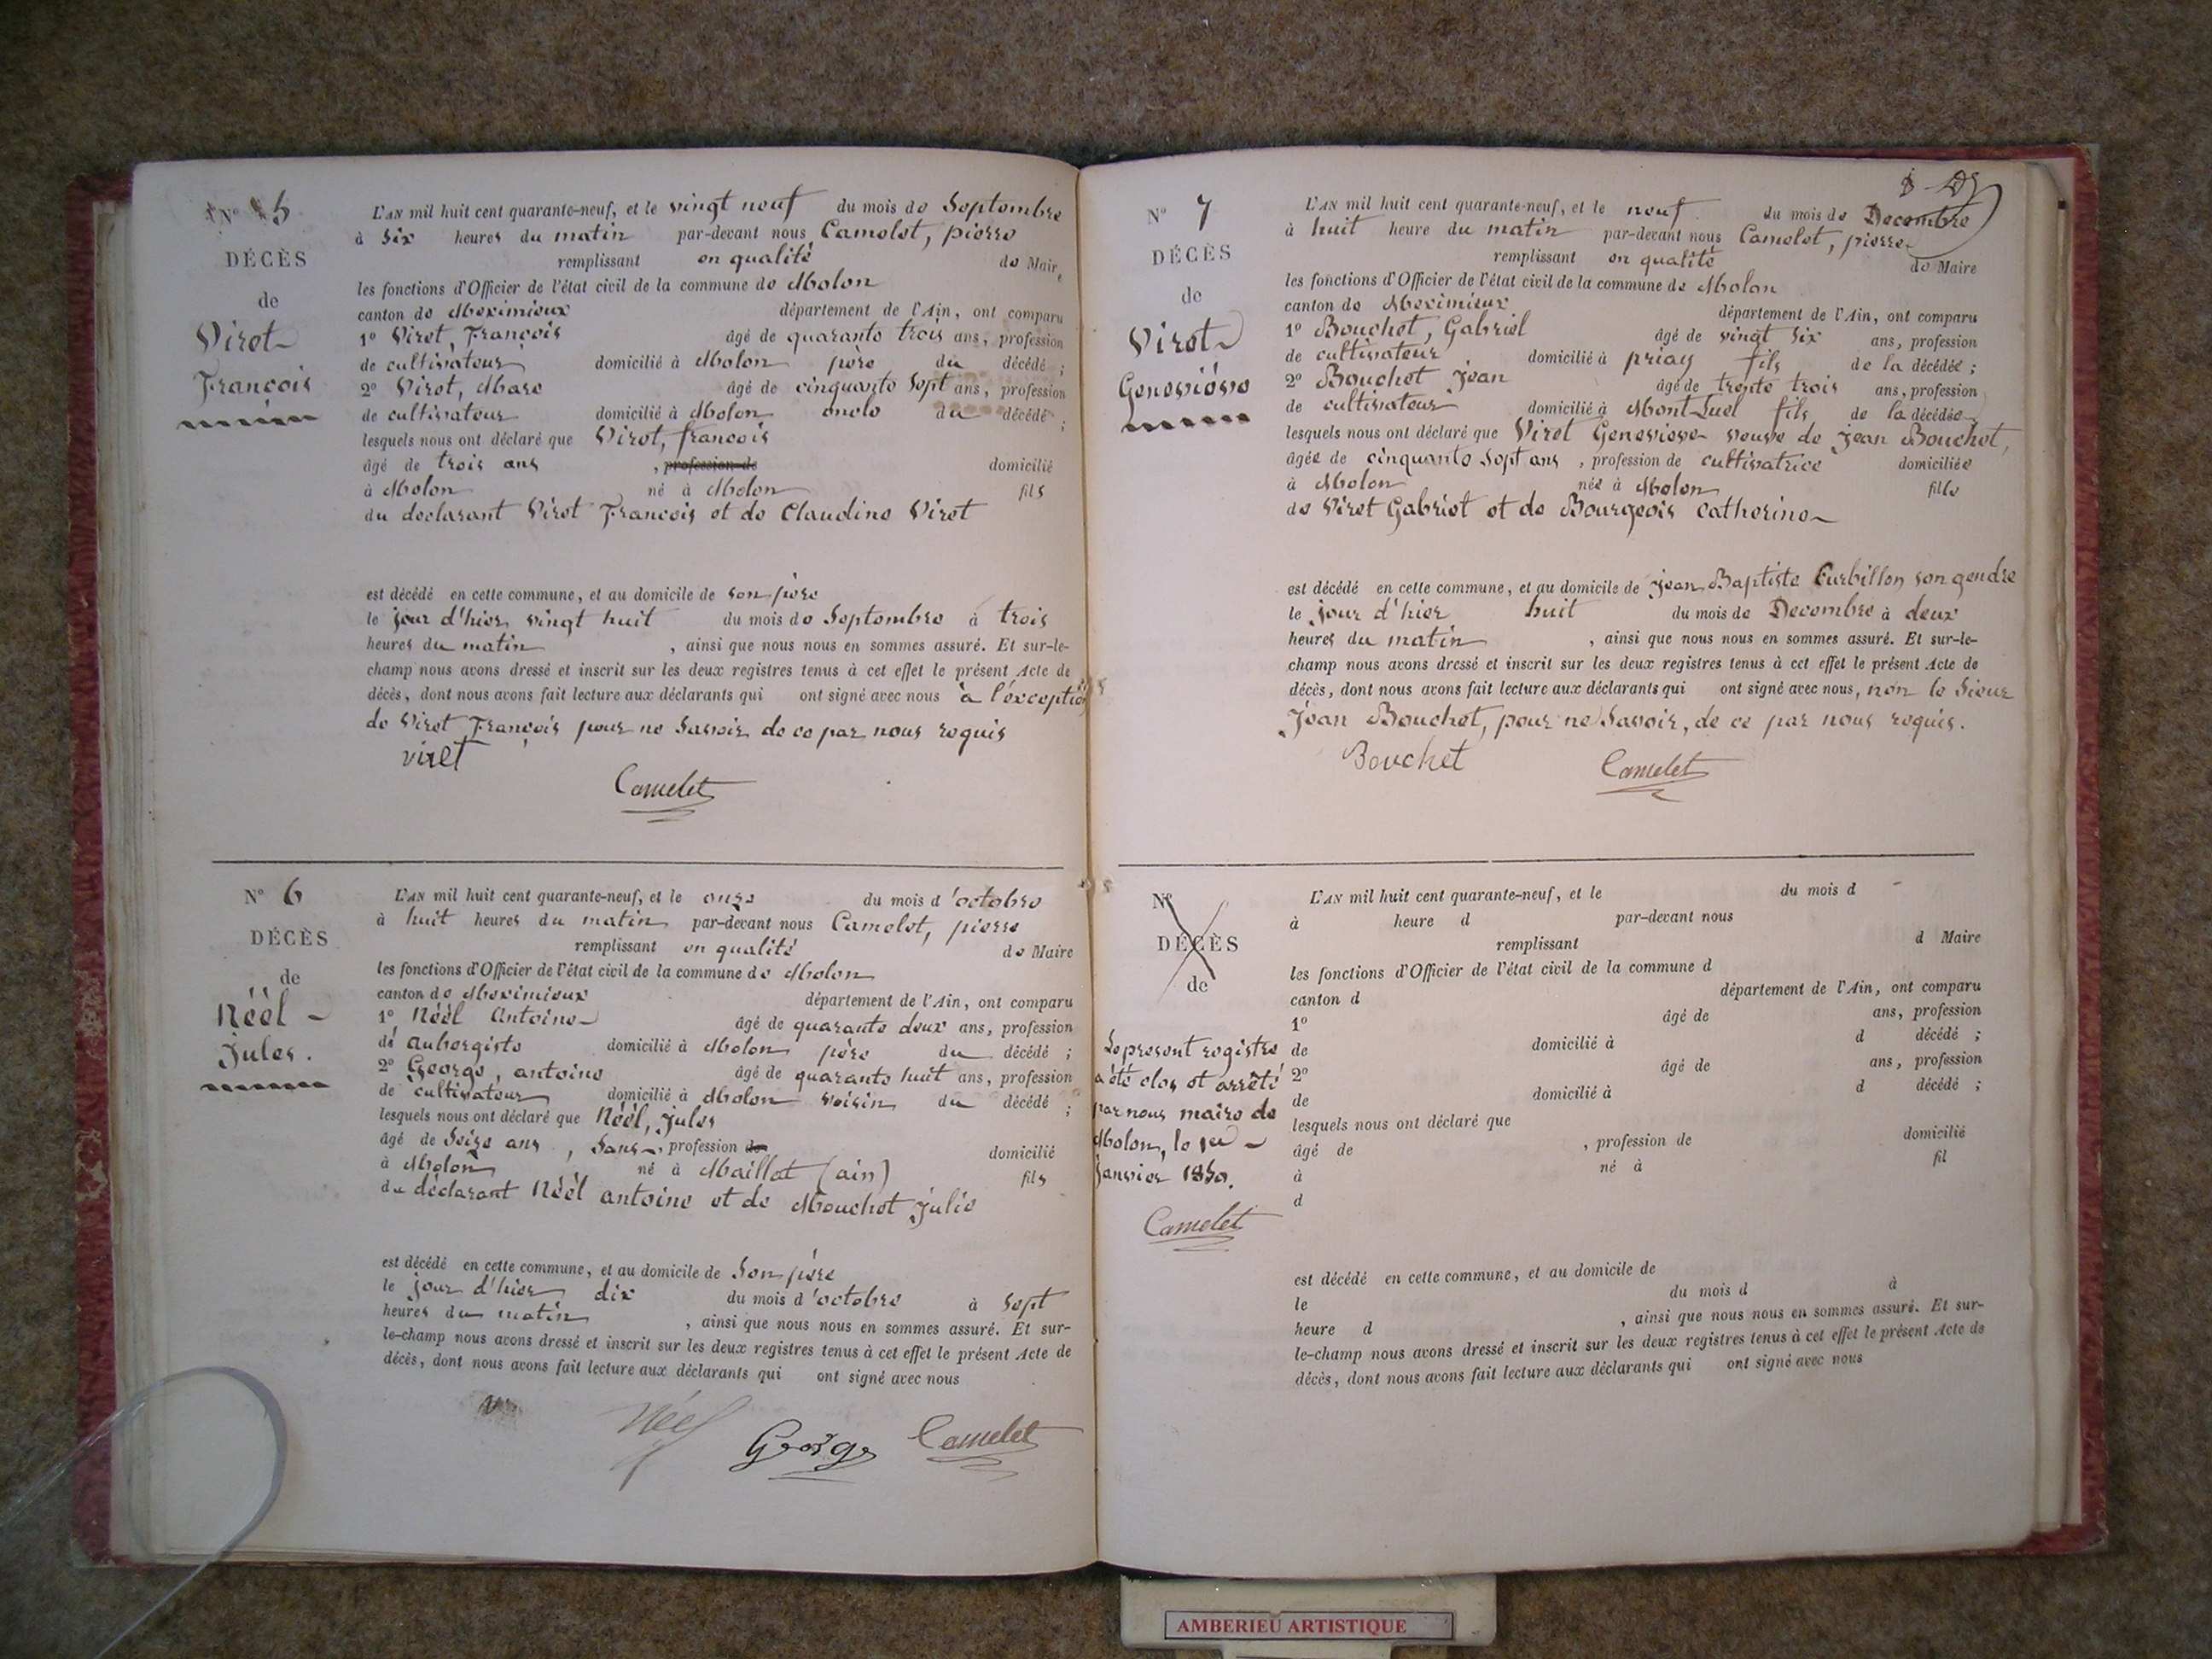 N° 5
DÉCÈS
de
Viret
François
L'AN mil huit cent quarante-neuf, et le vingt neuf du mois de Septembre
à Six heures du matin par-devant nous Camelet, pierre
remplissant en qualité de Maire
les fonctions d'Officier de l'état civil de la commune de Molon
canton de Meximieux département de l'Ain, ont comparu
1° Viret, François âgé de quarante trois ans, profession
de cultivateur domicilié à Molon père du décédé ;
2° Viret, Marc âgé de cinquante Sept ans, profession
de cultivateur domicilié à Molon oncle du décédé ;
lesquels nous ont déclaré que Viret, françois
âgé de trois ans , profession de domicilié
à Molon né à Molon fils
du declarant Viret François et de Claudine Viret
est décédé en cette commune, et au domicile de son père
le jour d'hier vingt huit du mois de Septembre à trois
heures du matin , ainsi que nous nous en sommes assuré. Et sur-le-
champ nous avons dressé et inscrit sur les deux registres tenus à cet effet le présent Acte de
décès, dont nous avons fait lecture aux déclarants qui ont signé avec nous à l'exception
de Viret François pour ne Savoir de ce par nous requis
viret
Camelet
N° 6
DÉCÈS
de
Néèl
Jules.
L'AN mil huit cent quarante-neuf, et le onze du mois d'octobre
à huit heures du matin par-devant nous Camelet, pierre
remplissant en qualité de Maire
les fonctions d'Officier de l'état civil de la commune de Molon
canton de Meximieux département de l'Ain, ont comparu
1° Néèl Antoine âgé de quarante deux ans, profession
de aubergiste domicilié à Molon père du décédé ;
2° George, antoine âgé de quarante huit ans, profession
de cultivateur domicilié à Molon voisin du décédé ;
lesquels nous ont déclaré que Néèl, Jules
âgé de Seize ans , Sans profession de domicilié
à Molon né à Maillat (ain) fils
du déclarant Néèl antoine et de Mouchet Julie
est décédé en cette commune, et au domicile de Son père
le jour d'hier dix du mois d'octobre à Sept
heures du matin , ainsi que nous nous en sommes assuré. Et sur-
le-champ nous avons dressé et inscrit sur les deux registres tenus à cet effet le présent Acte de
décès, dont nous avons fait lecture aux déclarants qui ont signé avec nous
Néel George Camelet
N° 7
DÉCÈS
de
Viret
Geneviève
L'AN mil huit cent quarante-neuf, et le neuf du mois de Decembre
à huit heure du matin par-devant nous Camelet, pierre
remplissant en qualité de Maire
les fonctions d'Officier de l'état civil de la commune de Molon
canton de Meximieux département de l'Ain, ont comparu
1° Bouchet, Gabriel âgé de vingt Six ans, profession
de cultivateur domicilié à priay fils de la décédée ;
2° Bouchet Jean âgé de trente trois ans, profession
de cultivateur domicilié à Mont Luel fils de la décédée ;
lesquels nous ont déclaré que Viret Genevieve veuve de Jean Bouchet,
âgée de cinquante Sept ans , profession de cultivatrice domiciliée
à Molon née à Molon fille
de Viret Gabriel et de Bourgeois Catherine
est décédé en cette commune, et au domicile de Jean Baptiste Curbillon son gendre
le jour d'hier huit du mois de Decembre à deux
heures du matin , ainsi que nous nous en sommes assuré. Et sur-le-
champ nous avons dressé et inscrit sur les deux registres tenus à cet effet le présent Acte de
décès, dont nous avons fait lecture aux déclarants qui ont signé avec nous, non le Sieur
Jean Bouchet, pour ne Savoir, de ce par nous requis.
Bouchet Camelet
N°
DÉCÈS
de
Le present registre
a été clos et arrêté
par nous maire de
Molon, le 1er
Janvier 1850.
Camelet
L'AN mil huit cent quarante-neuf, et le du mois d
à heure d par-devant nous
remplissant d Maire
les fonctions d'Officier de l'état civil de la commune d
canton d département de l'Ain, ont comparu
1° âgé de ans, profession
de domicilié à d décédé ;
2° âgé de ans, profession
de domicilié à d décédé ;
lesquels nous ont déclaré que
âgé de , profession de domicilié
à né à fil
d
est décédé en cette commune, et au domicile de
le du mois d à
heure d , ainsi que nous nous en sommes assuré. Et sur-
le-champ nous avons dressé et inscrit sur les deux registres tenus à cet effet le présent Acte de
décès, dont nous avons fait lecture aux déclarants qui ont signé avec nous
AMBERIEU ARTISTIQUE